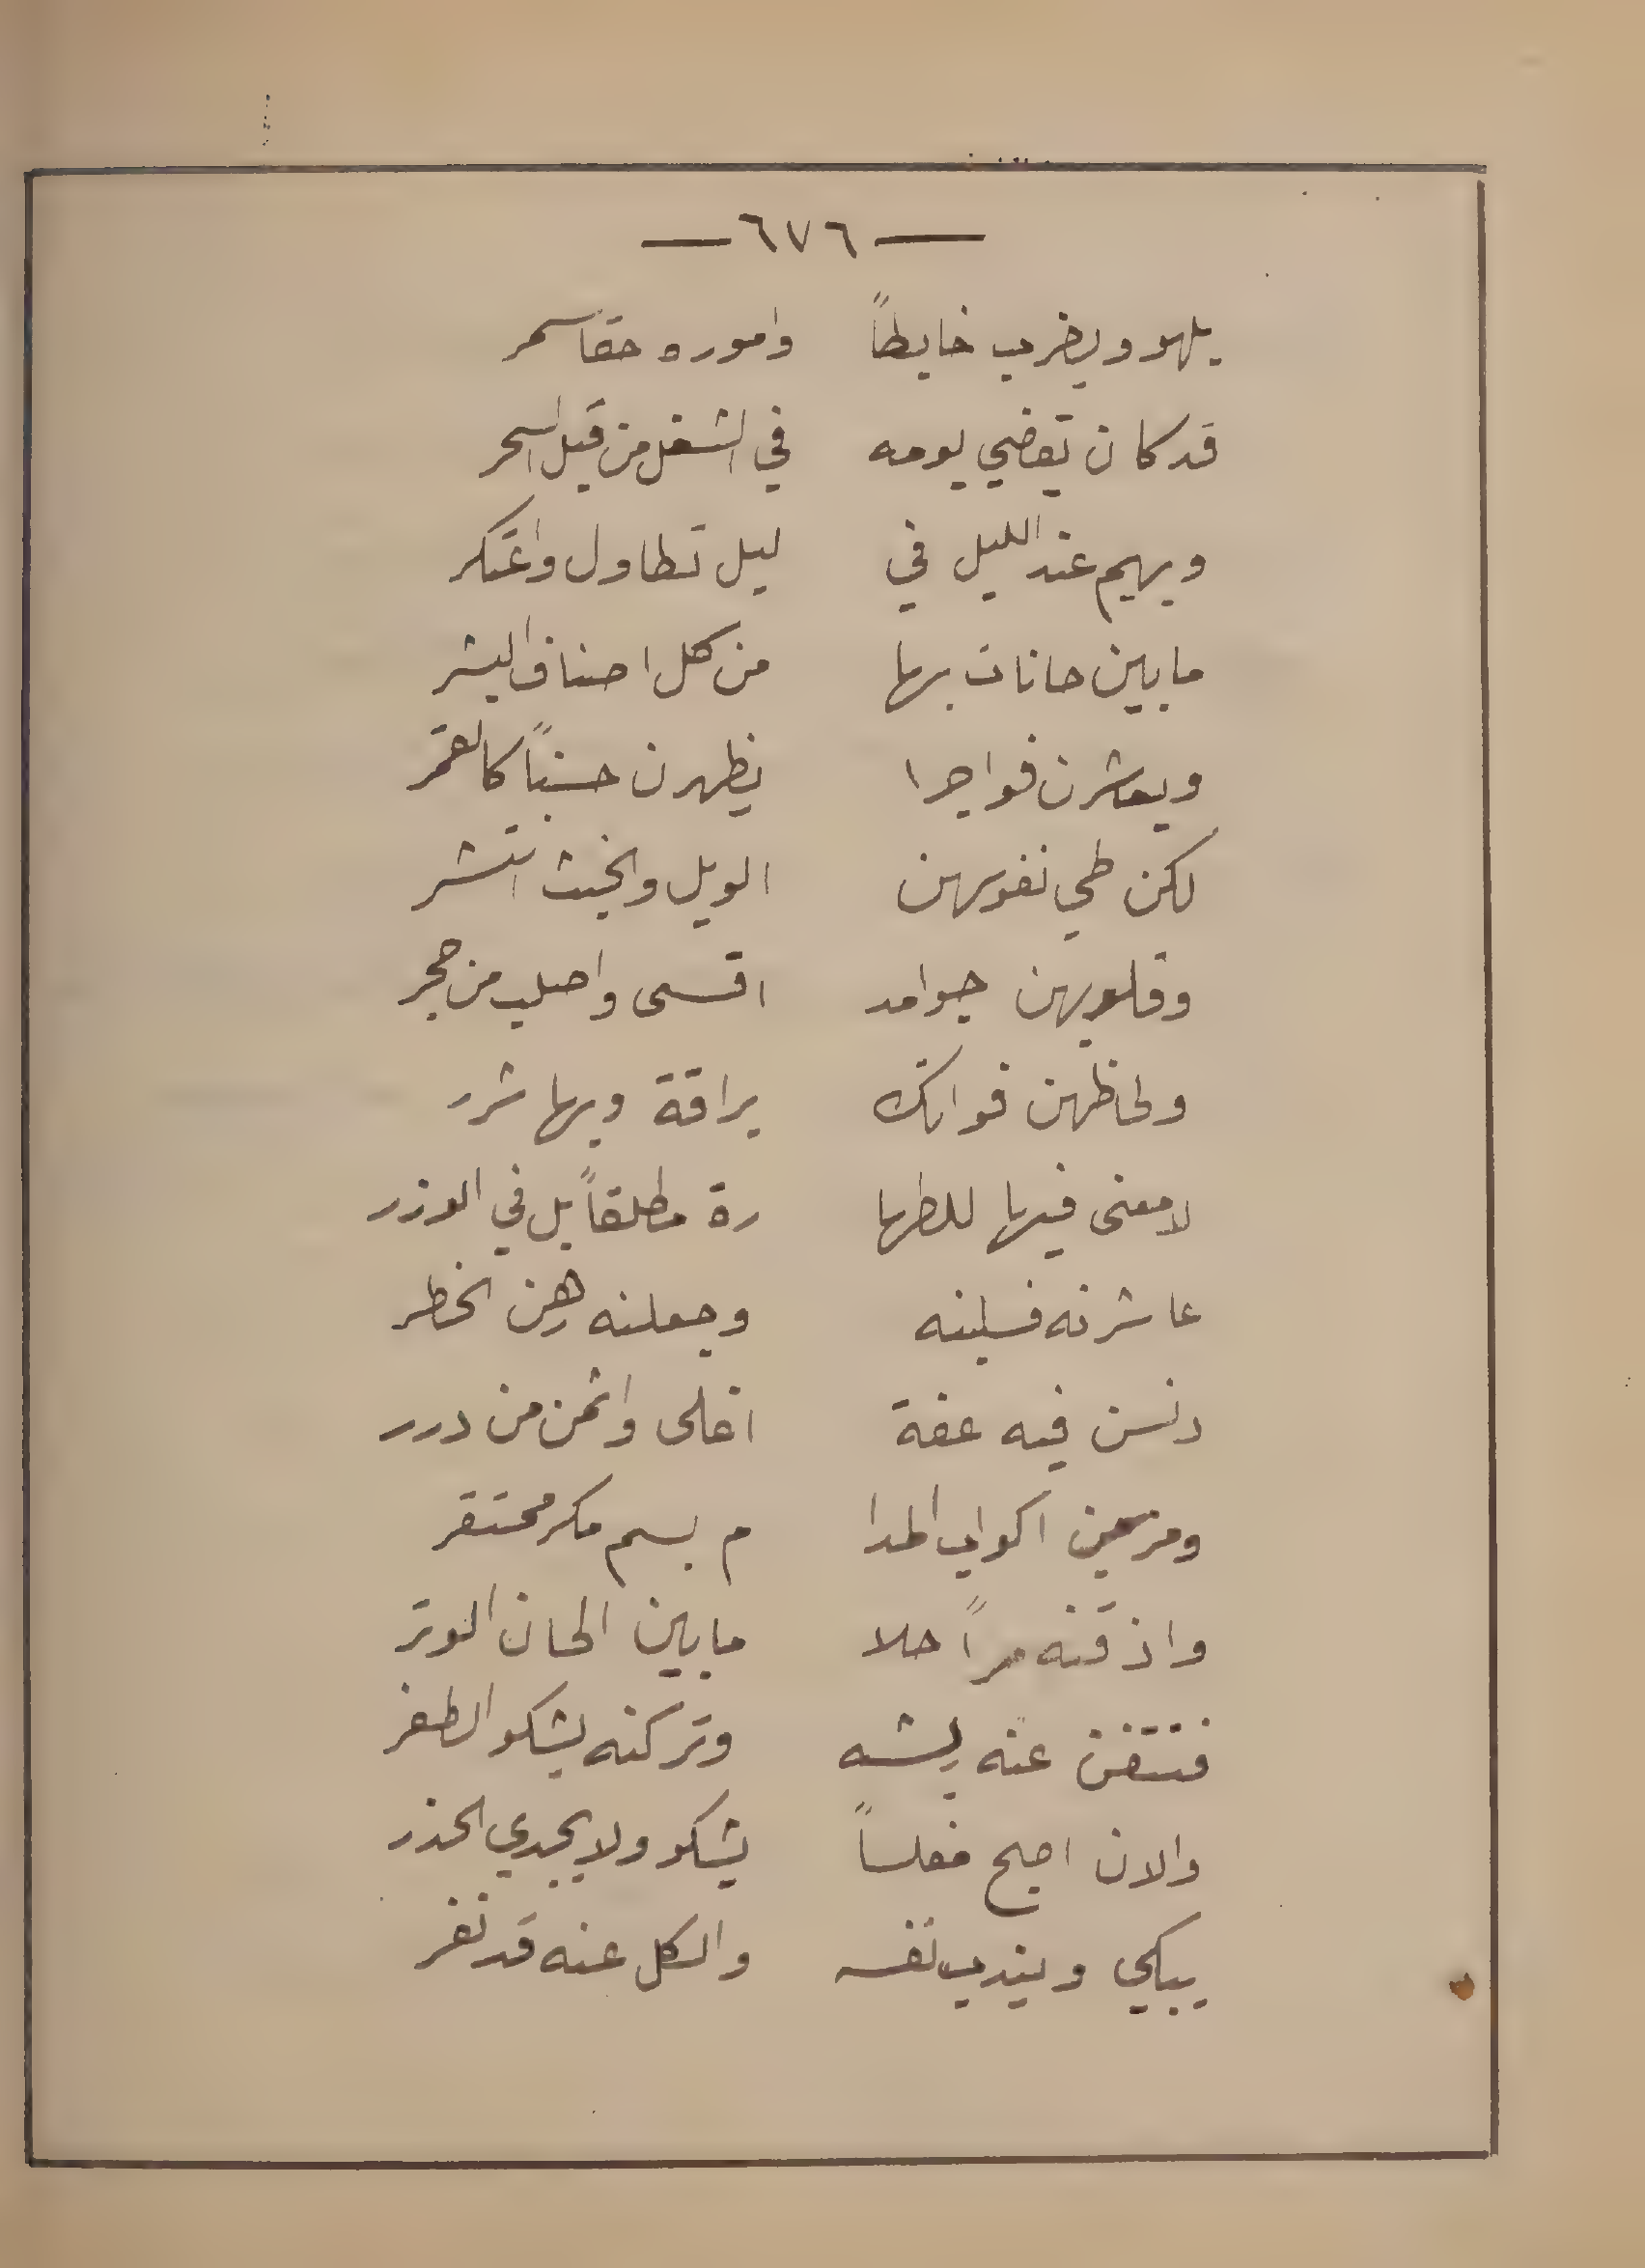 —٦٧٦—
يلهو ويضرب خابطاً وأموره حقا سمر
قد كان تقضي يومه في الشغل من قبل السحر
ويهيم عند الليل في ليل تطاول واعتكر
ما بين حانات بها من كل اصناف البشر
ويعشرن فواجرا يظهرن حسناً كالقمر
لكن طي نفوسهن الويل والخبث انتشر
وقلوبهن جوامد اقسى واصلب من حجر
ولحاظهن فواتك براقة وبها شرر
لا معنى فيها للطها رة مطلقاً بل في الوزر
عاشرنه فسلبنه وجعلنه رهن الخطر
دنسن فيه عفة اغلى واثمن من درر
ومزجن اكواب المدا م بسم مكر محتقر
واذقنه مراً حلا ما بين الحان الوتر
فنتفن عنه ريشه وتركنه يشكو الظفر
والان اصبح مفلساً يشكو ولا يجدي الحذر
يبكي ويندب نفسه والكل عنه قد نفر